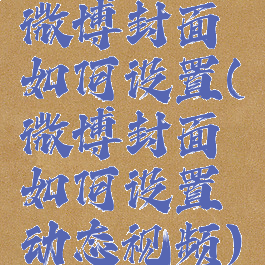 微博封面
如何设置(
微博封面
如何设置
动态视频)